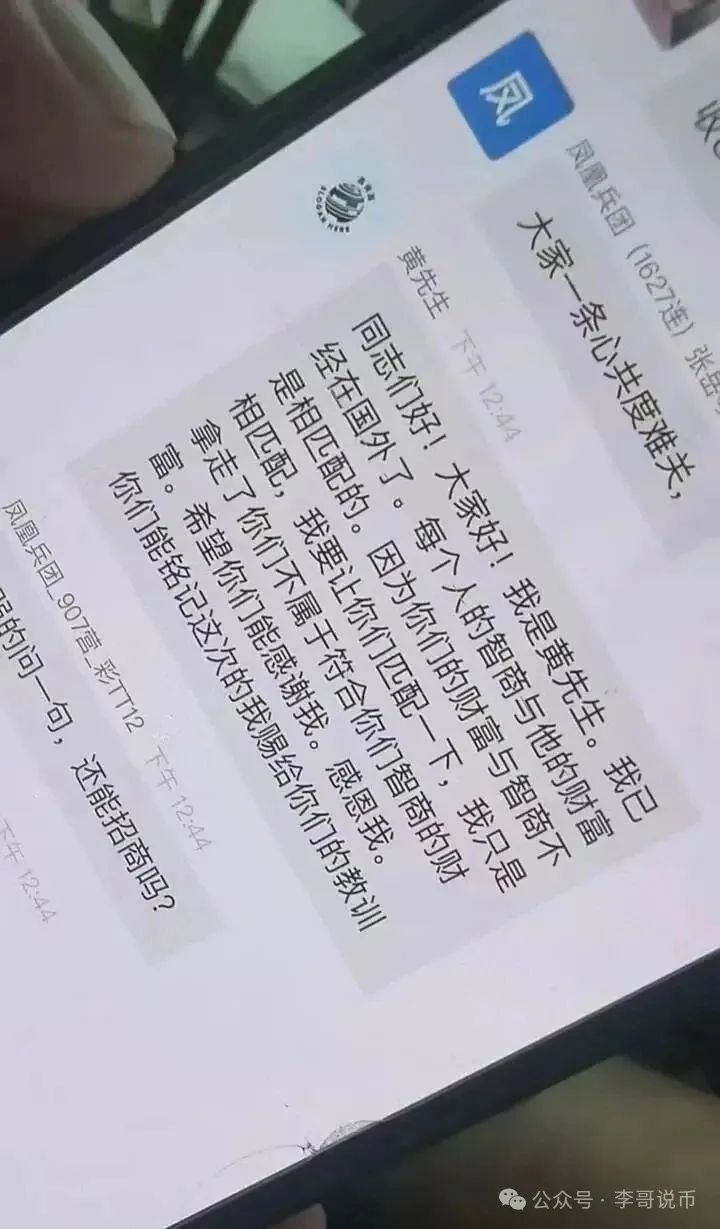 凤
凤凰兵团（1627连）张岳
大家一条心共度难关，
SLOGAN HERE
黄先生 下午 12:44
同志们好！大家好！我是黄先生。我已
经在国外了。每个人的智商与他的财富
是相匹配的。因为你们的财富与智商不
相匹配，我要让你们匹配一下，我只是
拿走了你们不属于符合你们智商的财
富。希望你们能感谢我。感恩我。
你们能铭记这次的我赐给你们的教训
凤凰兵团_907营_彩TT12 下午 12:44
的问一句，还能招商吗？
下午 12:44
公众号 · 李哥说币